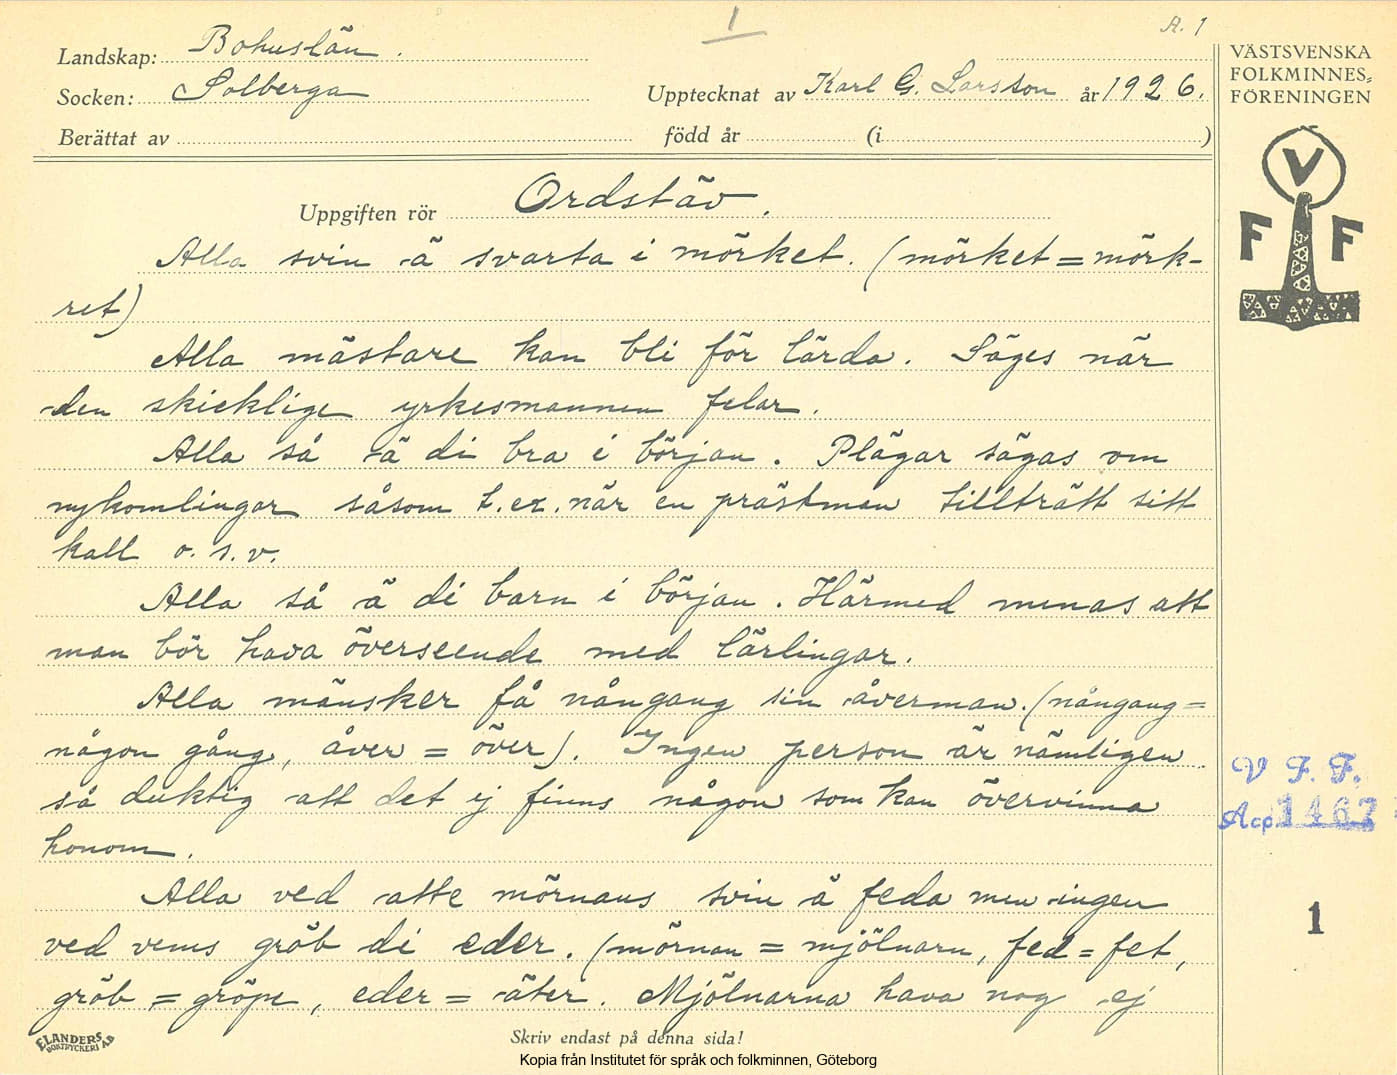 1
A. 1
Landskap: Bohuslän.
Socken: Solberga
Upptecknat av Karl G. Larsson år 1926.
Berättat av
född år
(i
)
VÄSTSVENSKA
FOLKMINNES-
FÖRENINGEN
V
F F
Uppgiften rör Ordstäv.
Alla svin ä svarta i mörket. (mörket = mörk-
ret)
Alla mästare kan bli för lärda. Säges när
den skicklige yrkesmannen felar.
Alla så ä di bra i början. Plägar sägas om
nykomlingar såsom t.ex. när en prästman tillträtt sitt
kall o.s.v.
Alla så ä di barn i början. Härmed menas att
man bör hava överseende med lärlingar.
Alla mänsker få nångang sin åverman. (nångang =
någon gång, åver = över). Ingen person är nämligen
så duktig att det ej finns någon som kan övervinna
honom.
Alla ved atte mörnans svin ä feda men ingen
ved vems gröb di eder. (mörnan = mjölnarn, fed = fet,
gröb = gröpe, eder = äter. Mjölnarna hava nog ej
V. F. F.
Acc. 1467
1
ELANDERS
BOKTRYCKERI A.B
Skriv endast på denna sida!
Kopia från Institutet för språk och folkminnen, Göteborg